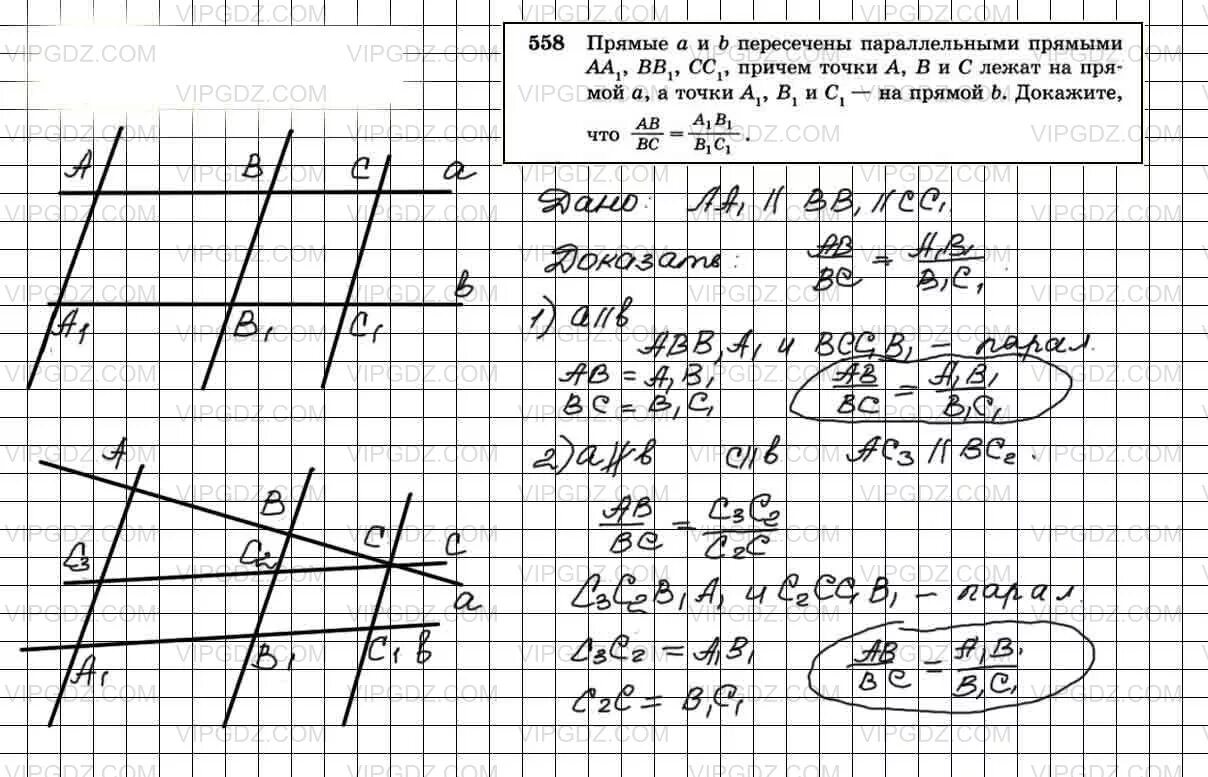 558 Прямые a и b пересечены параллельными прямыми
AA₁, BB₁, CC₁, причем точки A, B и C лежат на пря-
мой a, а точки A₁, B₁ и C₁ — на прямой b. Докажите,
что AB/BC = A₁B₁/B₁C₁.
A B C a
A₁ B₁ C₁ в
Дано: AA₁ || BB₁ || CC₁
Доказать: AB/BC = A₁B₁/B₁C₁
1) a||в
ABB₁A₁ и BCC₁B₁ – парал.
AB = A₁B₁
BC = B₁C₁
AB/BC = A₁B₁/B₁C₁
A B C
C₃ C₂ C
a
A₁ B₁ C₁ в
2) a∦в c||в AC₃ || BC₂.
AB/BC = C₃C₂/C₂C
C₃C₂B₁A₁ и C₂CC₁B₁ – парал.
C₃C₂ = A₁B₁
C₂C = B₁C₁
AB/BC = A₁B₁/B₁C₁
VIPGDZ.COM